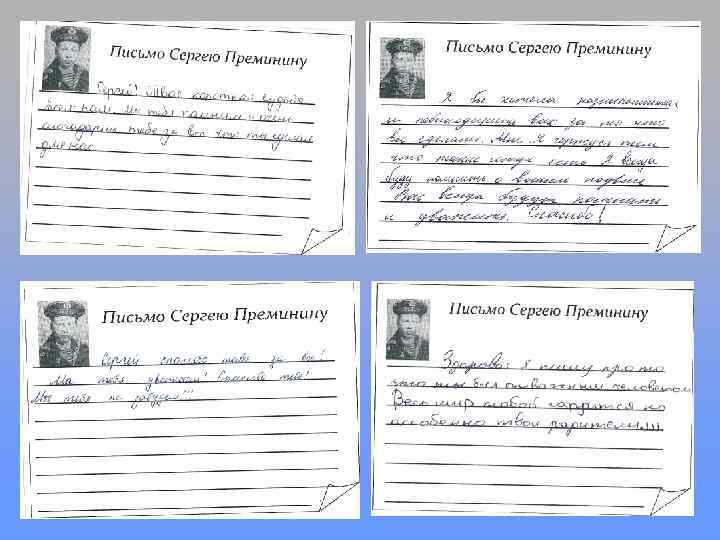 Письмо Сергею Преминину
Сергей! Твас короткой будзе
всем нам. Мы тебя помним и очень
благодарны тебе за все что ты сделал
для нас
Письмо Сергею Преминину
Я бы хотела
и поблагодарить вас за то что
вы сделали. Мы. Я горжусь тем
что такие люди есть Я всегда
буду помнить о вашем подвиге
Вас всегда будут помнить
и уважать. Спасибо!
Письмо Сергею Преминину
Сергей спасибо тебе за все!
Мы тебя уважаем! Спасибо тебе!
Мы тебя не забудем!!!
Письмо Сергею Преминину
Здорово: я пишу про то
что ты был отважным человеком
Весь мир тобой гордится но
особенно твои радители!!!